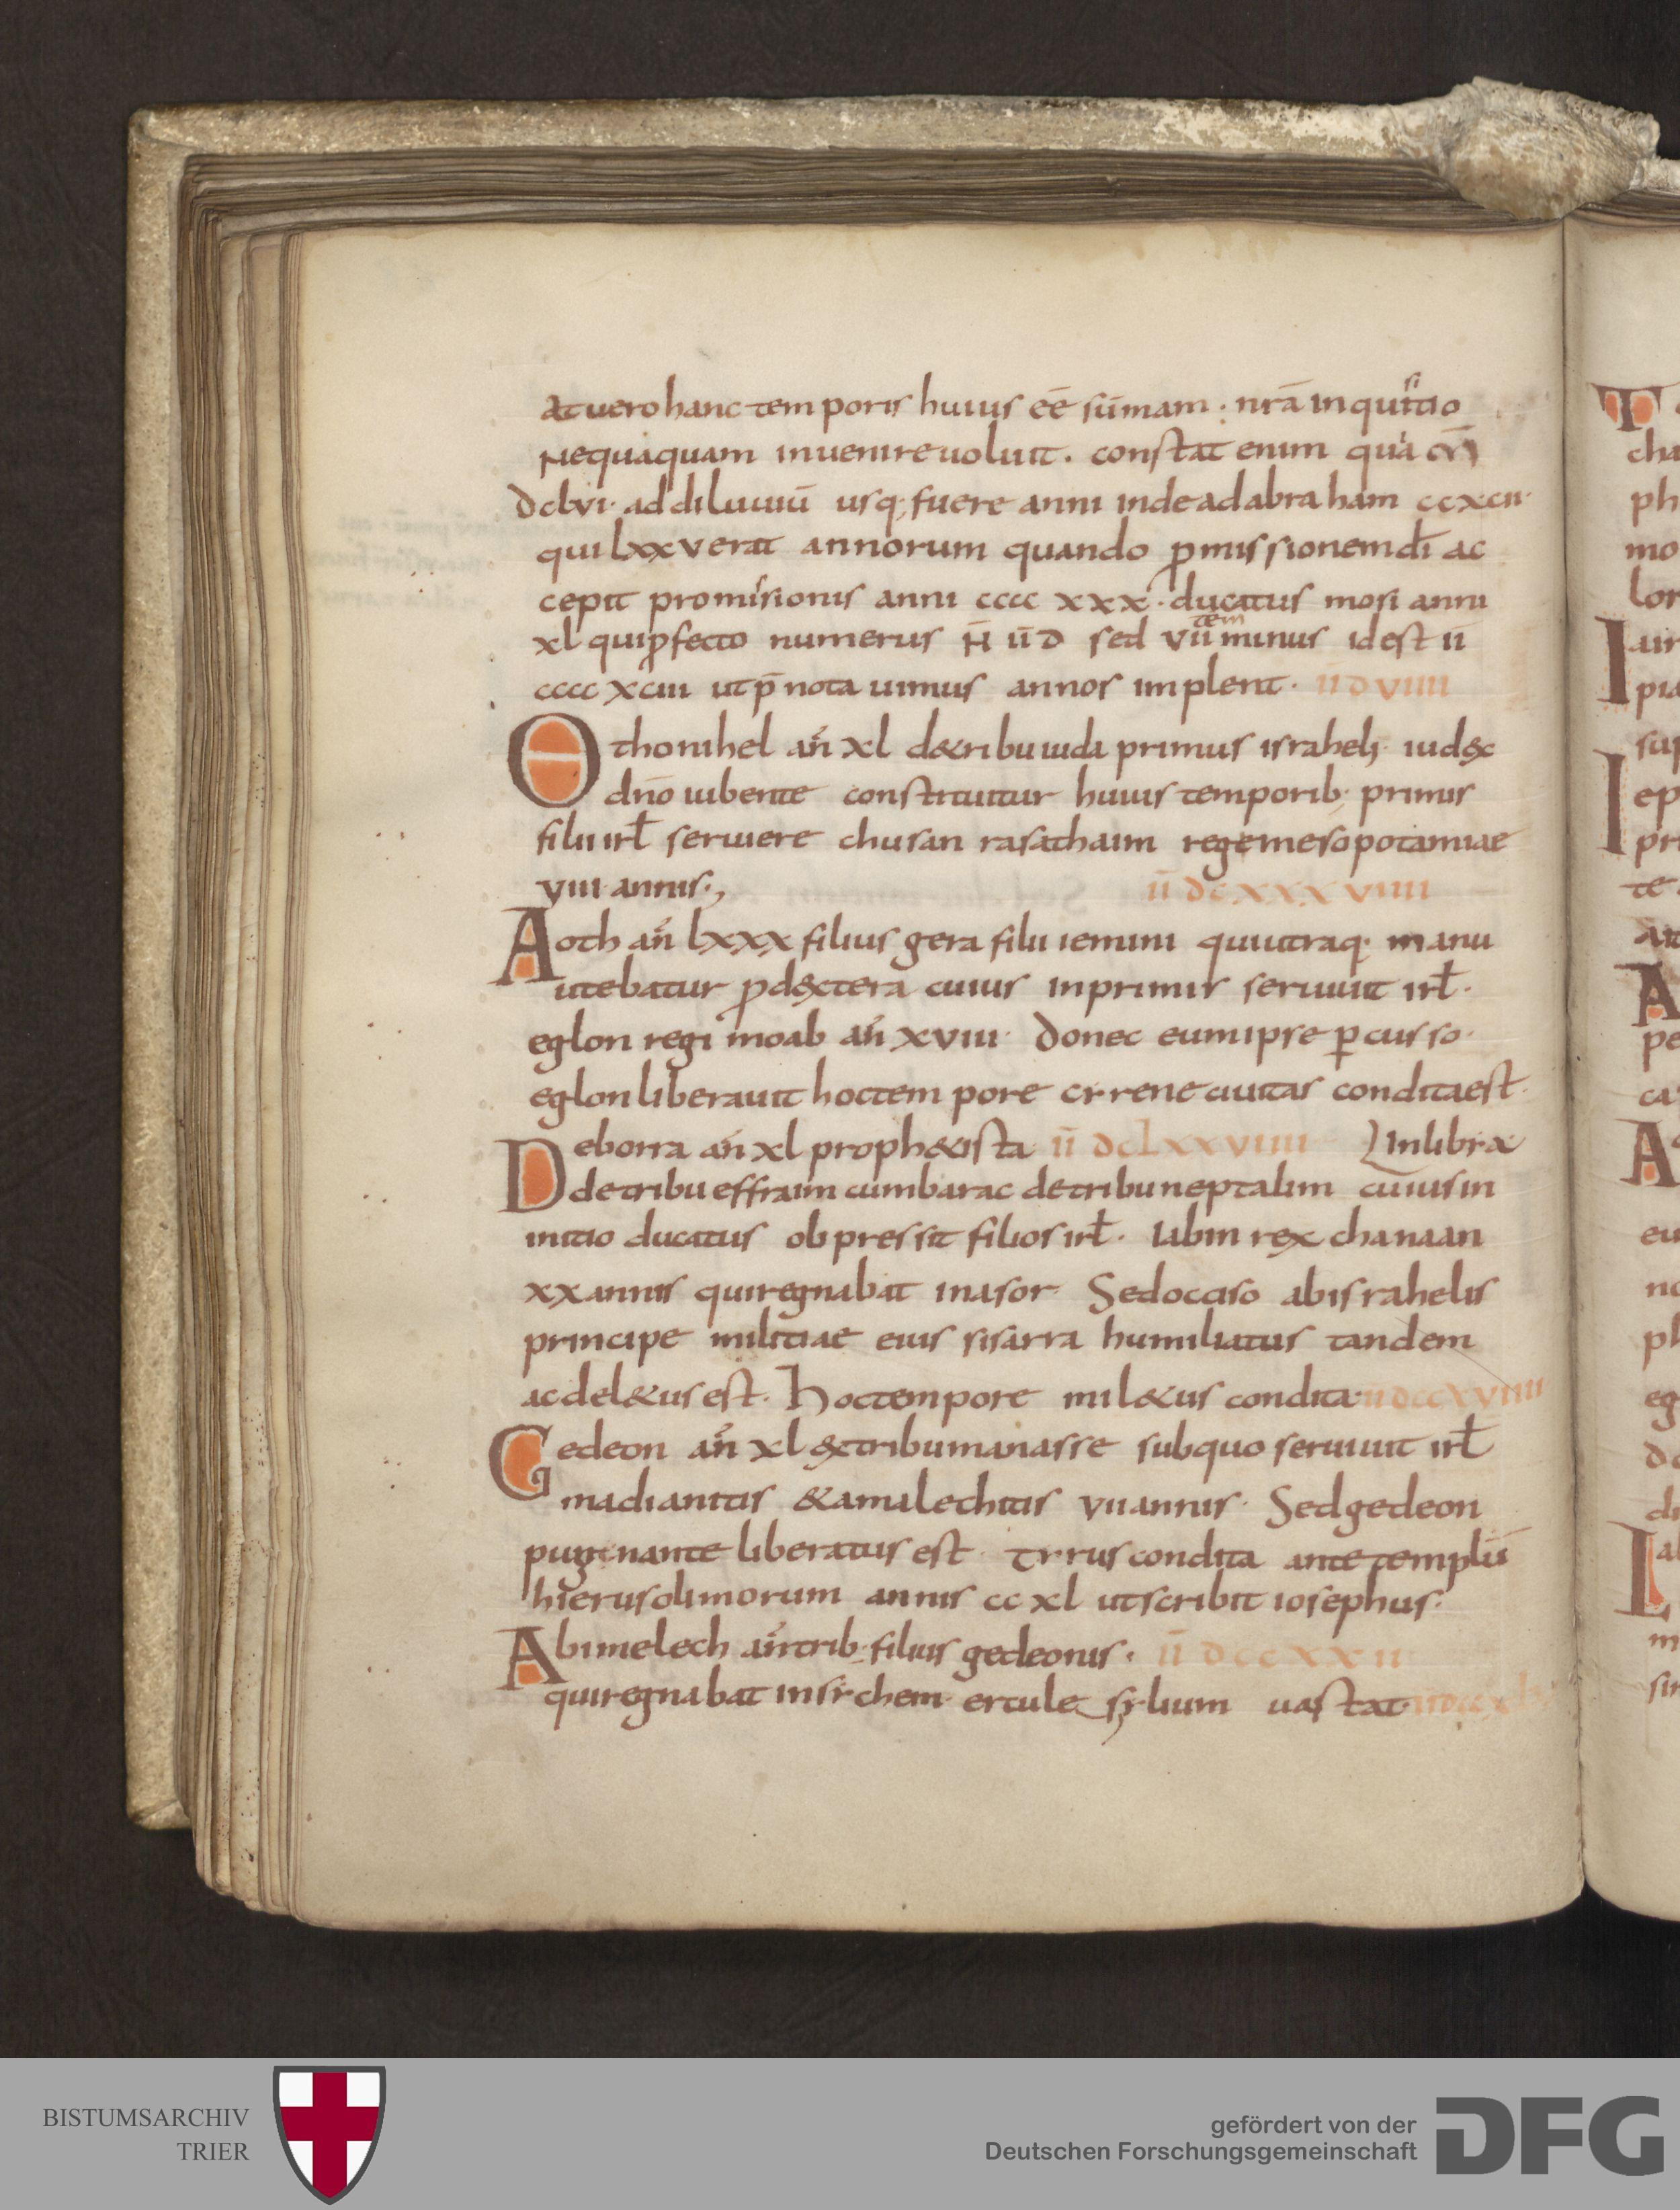 At uero hanc temporis huius eē sūmam · nr̄a inquisitio
Nequaquam inuenire uoluit · constat enim quia m̄
dclvi · ad diluuiū usq; fuere anni inde ad abraham ccxcii·
qui lxxv erat annorum quando ꝓmissionem dī ac
cepit promissionis anni cccc xxx · ducatus mosi anni
xl qui ꝓfecto numerus n̄ īīd sed viitem minus id est īī
cccc xciii ut p̄notauimus annos implent · īīdviiii
Othonihel añ xl de tribu iuda primus israhelis iudex
dn̄o iubente constituitur huius temporib; primis
filii irl̄ seruiere chusan rasathaim rege mesopotamiae
viii annis·, īīdcxxxviiii
Aoth añ lxxx filius gera filii iemini qui utraq; manu
utebatur ꝓ dextera cuius inprimis seruiuit irl̄ ·
eglon regi moab añ xviii · donec eum ipse ꝑcusso ·
eglon liberauit hoc tempore cyrene ciuitas condita est ·
Deborra añ xl prophetista īī dclxxviiii in libra
de tribu effraim cum barac de tribu neptalim cuius in
initio ducatus obpressit filios irl̄ · Iabin rex chanaan
xx annis qui regnabat in asor · Sed occiso ab israhelis
principe militiae eius sisarra humiliatus tandem
ac deletus est · Hoc tempore miletus condita· īīdccxviiii
Gedeon añ xl ex tribu manasse sub quo seruiuit irl̄
madianitis & amalechitis vii annis · Sed gedeon
pugnante liberatus est · Tyrus condita ante templū
hierusolimorum annis cc xl ut scribit iosephus ·
Abimelech añ trib; filius gedeonis · īī dccxxii
qui regnabat in sychem · ercule ylium uastat·
BISTUMSARCHIV
TRIER
gefördert von der
Deutschen Forschungsgemeinschaft
DFG